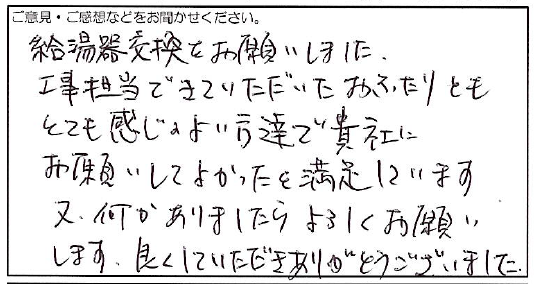 ご意見・ご感想などをお聞かせください。
給湯器交換をお願いしました.
工事担当できていただいたおふたりとも
とても感じのよい方達で貴社に
お願いしてよかったと満足しています
又、何かありましたらよろしくお願い
します. 良くしていただきありがとうございました.